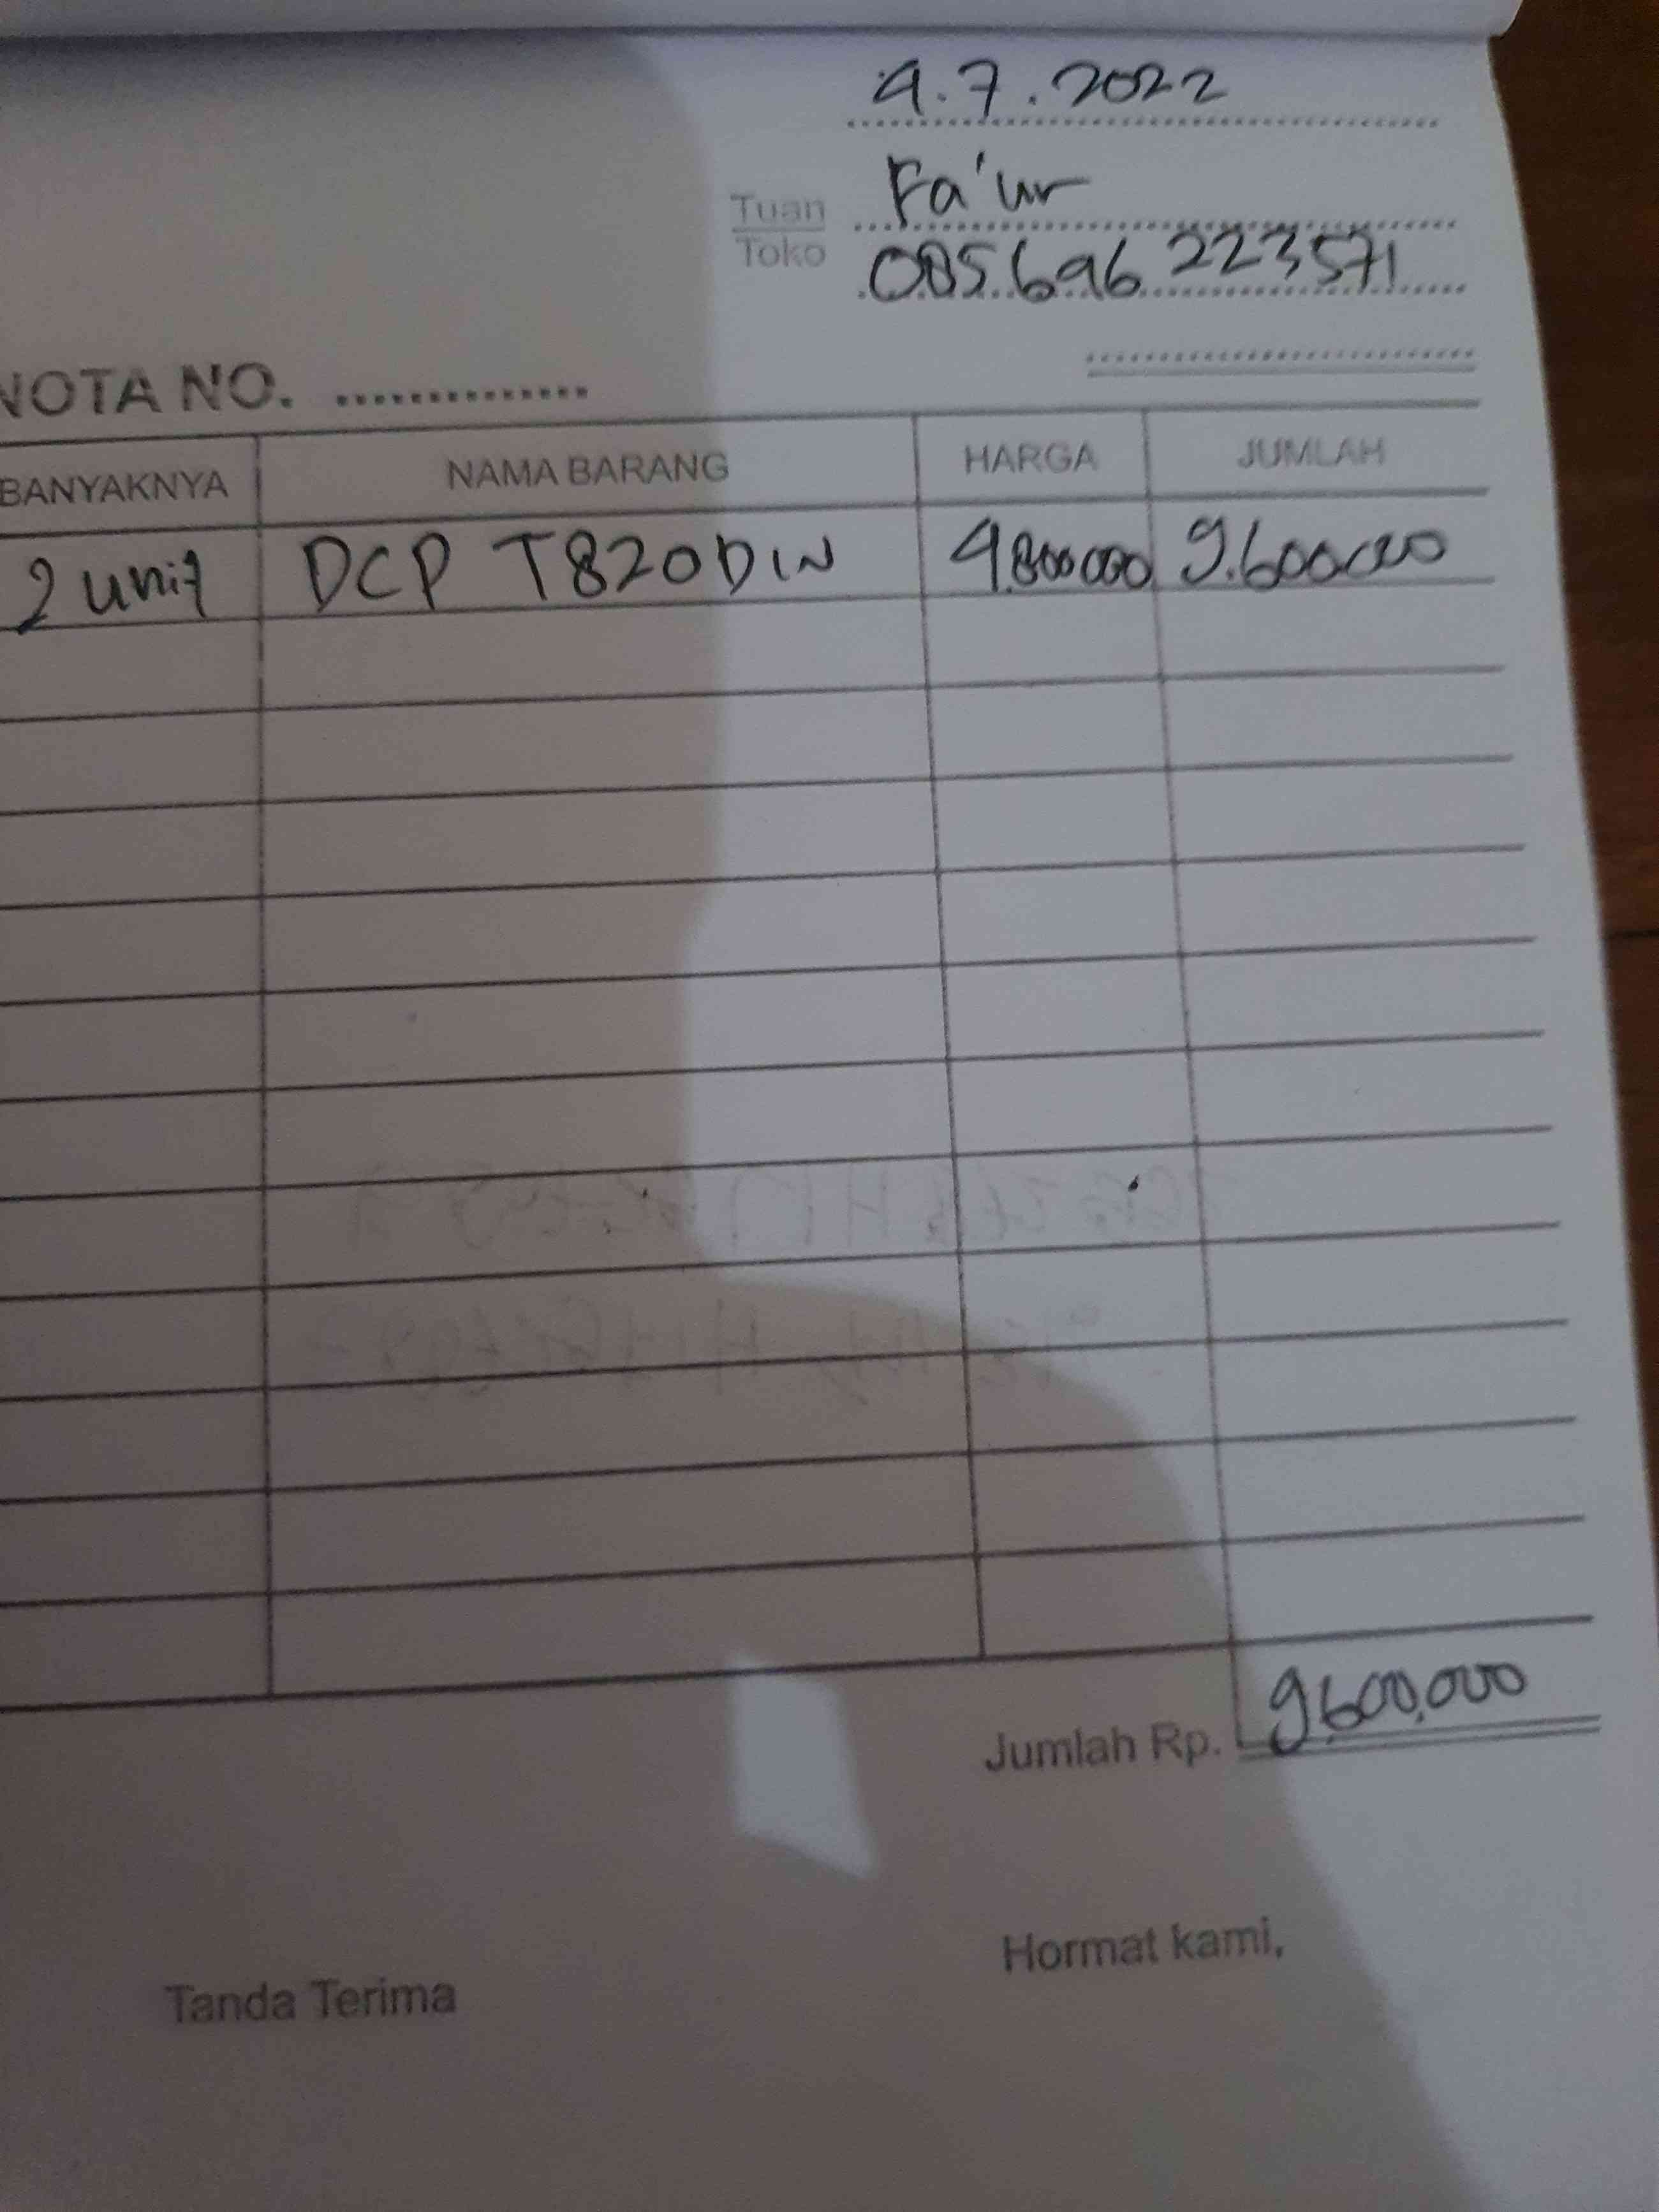 4.7.2022
Tuan Fa'ur
Toko 085696223571
NOTA NO. ...............
BANYAKNYA NAMA BARANG HARGA JUMLAH
2 unit DCP T820DW 4.800.000 9.600.000
Jumlah Rp. 9.600.000
Tanda Terima Hormat kami,